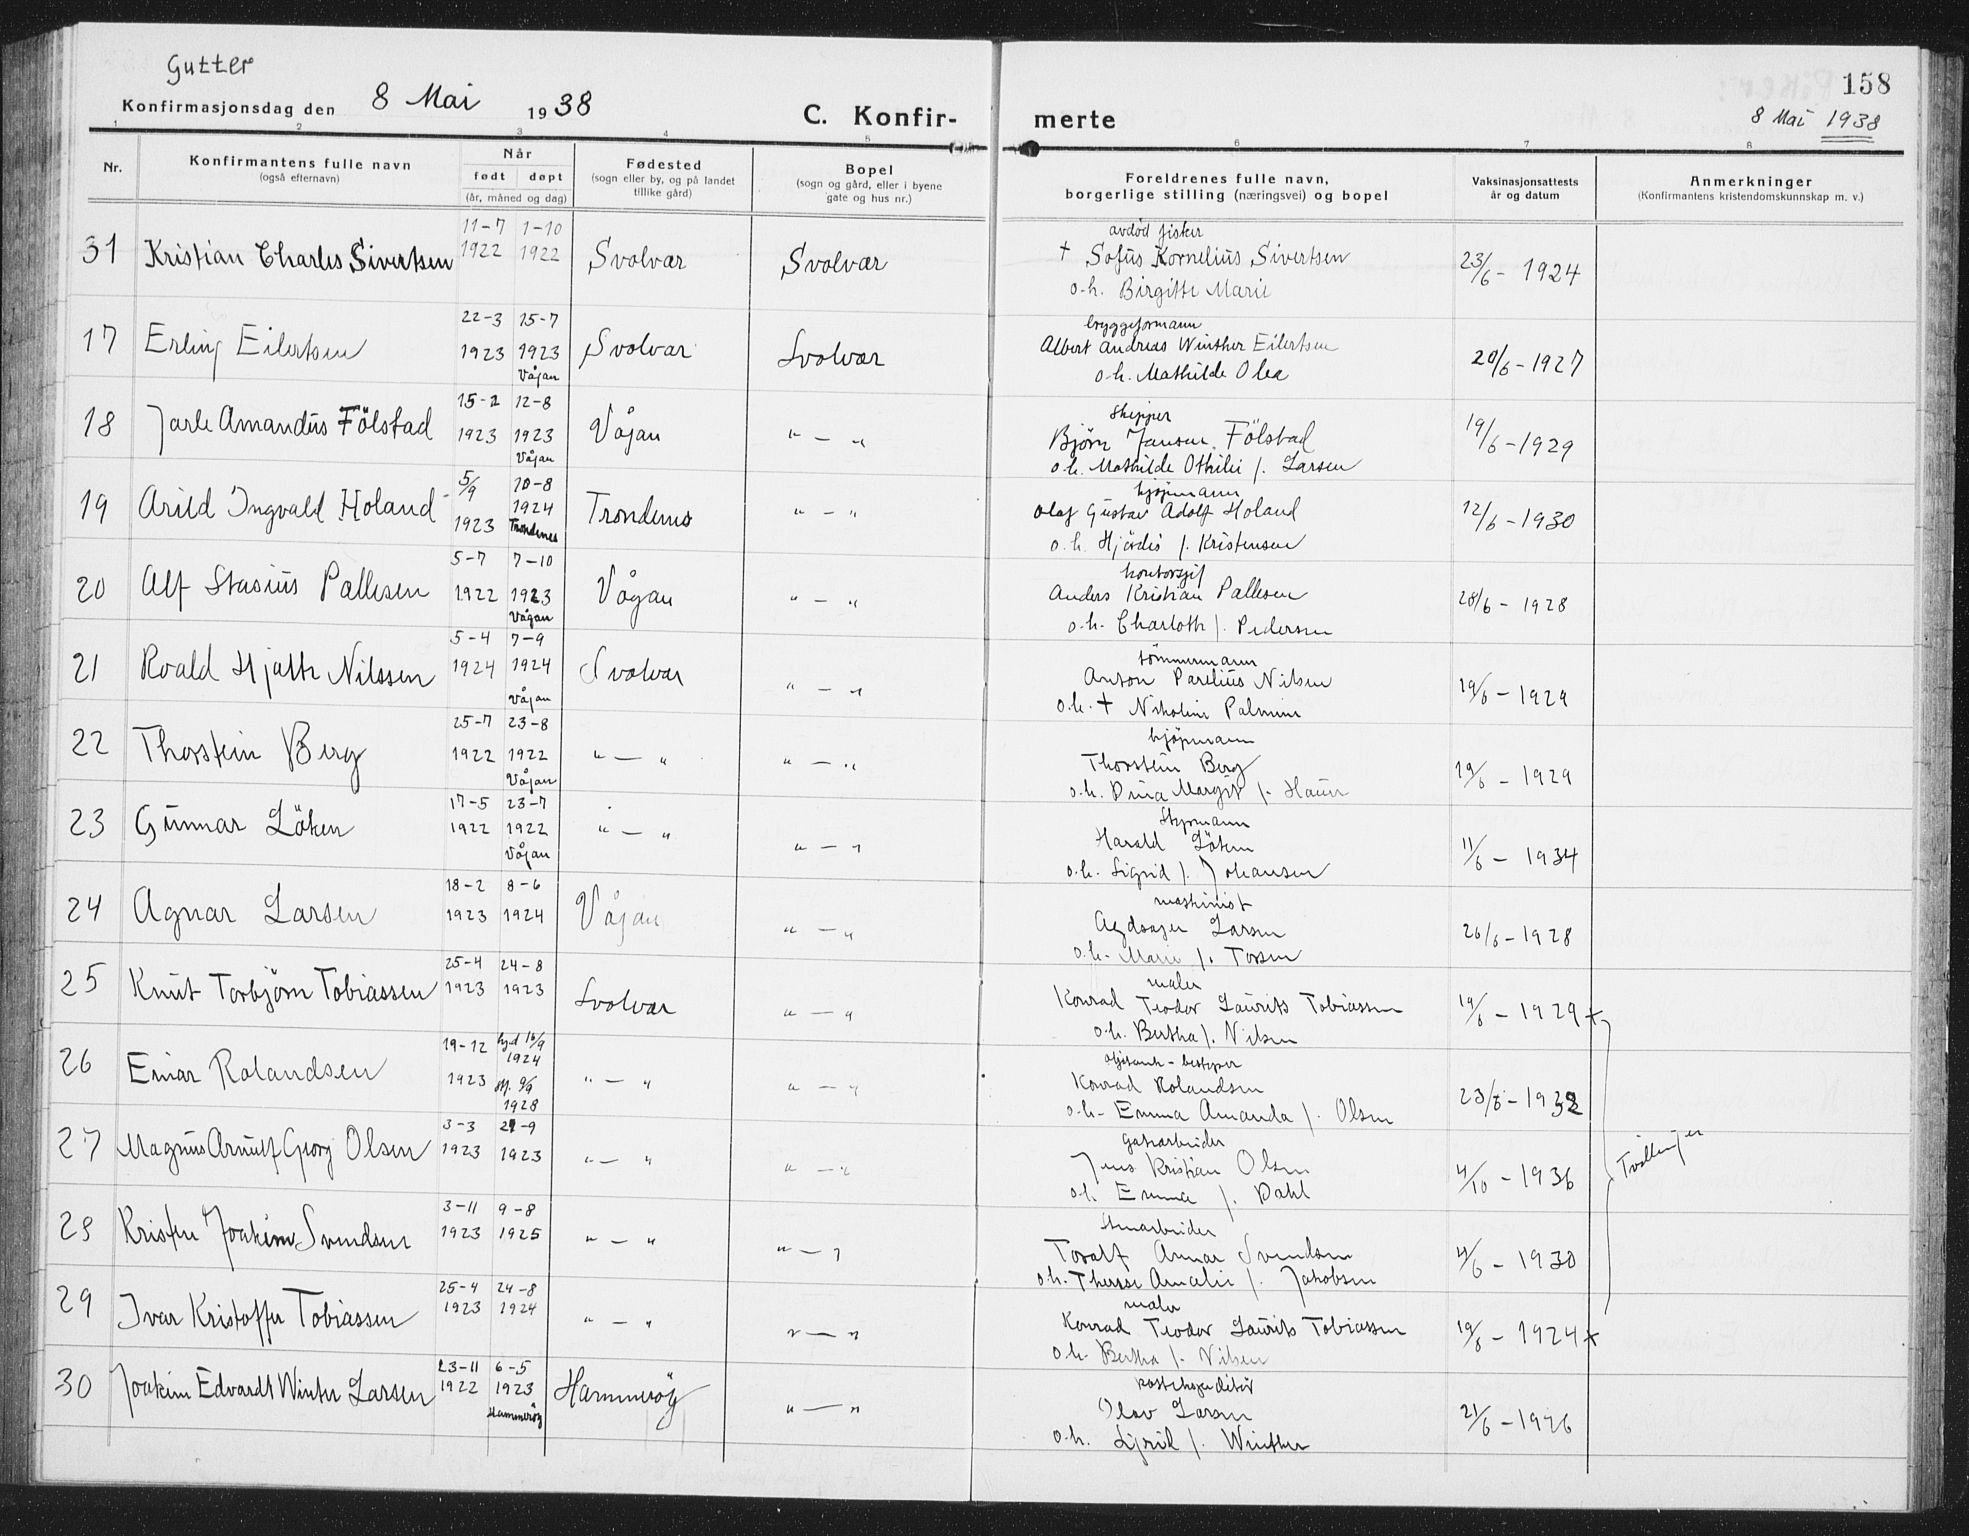 Gutter
Konfirmasjonsdag den 8 Mai 1938
C. Konfir-
merte
158
8 Mai 1938
1 2 3 4 5 6 7 8
Nr.
Konfirmantens fulle navn
(også efternavn)
Når
født døpt
(år, måned og dag)
Fødested
(sogn eller by, og på landet
tillike gård)
Bopel
(sogn og gård, eller i byene
gate og hus nr.)
Foreldrenes fulle navn,
borgerlige stilling (næringsvei) og bopel
Vaksinasjonsattests
år og datum
Anmerkninger
(Konfirmantens kristendomskunnskap m. v.)
11-7 1-10 avdöd fisker
31 Kristian Charles Sivertsen 1922 1922 Svolvær Svolvær † Sofus Kornelius Sivertsen 23/6 - 1924
o.h. Birgitte Marie
22-3 15-7 bryggeformann
17 Erling Eilertsen 1923 1923 Svolvær Svolvær Albert Andreas Winther Eilertsen 20/6 - 1927
Vågan o.h. Mathilde Olea
15-2 12-8 skipper
18 Jarle Amandus Fölstad 1923 1923 Vågan " — " Björn Jansen Fölstad 19/6 - 1929
Vågan o.h. Mathilde Othilie f. Larsen
5/9 10-8 kjöpmann
19 Arild Ingvald Holand 1923 1924 Trondenes " — " Olaf Gustav Adolf Holand 12/6 - 1930
Trondenes o.h. Hjördis f. Kristensen
5-7 7-10
20 Alf Stasius Pallesen 1922 1923 Vågan " — " Anders Kristian Pallesen 28/6 - 1928
Vågan o.h. Charloth f. Pedersen
5-4 7-9 tömmermann
21 Roald Hjalth Nilssen 1924 1924 Svolvær " — " Anton Parelius Nilsen 19/6 - 1929
Vågan o.h. † Nikoline
25-7 23-8 kjöpmann
22 Thorstein Berg 1922 1922 " — " " — " Thorstein Berg 19/6 - 1929
Vågan o.h. Dina Margit f.
17-5 23-7 Styrmann
23 Gunnar Löken 1922 1922 " — " " — " Harald Löken 11/6 - 1934
Vågan o.h. Sigrid f. Johansen
18-2 8-6 maskinist
24 Agnar Larsen 1923 1924 Vågan " — " Larsen 26/6 - 1928
o.h. Marie f.
25-4 24-8 maler
25 Knut Torbjörn Tobiassen 1923 1923 Svolvær " — " Konrad Teodor Laurits Tobiassen 19/6 - 1929 +
o.h. Bertha f. Nilsen
19-12 hj.d 16/9 1924
26 Einar Rolandsen 1923 9/9 1928 " — " " — " Konrad Rolandsen 23/6 - 1932
o.h. Emma Amanda f. Olsen
3-3 21-9 gatearbeider
27 Magnus Arnulf Georg Olsen 1923 1923 " — " " — " Jens Kristian Olsen 4/10 - 1936 Tvillinger
o.h. Emma f. Dahl
3-11 9-8
28 Kristen Joakim Svendsen 1923 1925 " — " " — " Toralf Annar Svendsen 4/6 - 1930
o.h. Therese Amalie f. Jakobsen
25-4 24-8 maler
29 Ivar Kristoffer Tobiassen 1923 1924 " — " " — " Konrad Teodor Laurits Tobiassen 19/6 - 1924 +
o.h. Bertha f. Nilsen
23-11 6-5 postekspeditör
30 Joakim Edvardt Winter Larsen 1922 1923 Hammeröy " — " Olav Larsen 21/6 - 1926
Hammeröy o.h. f. Winther